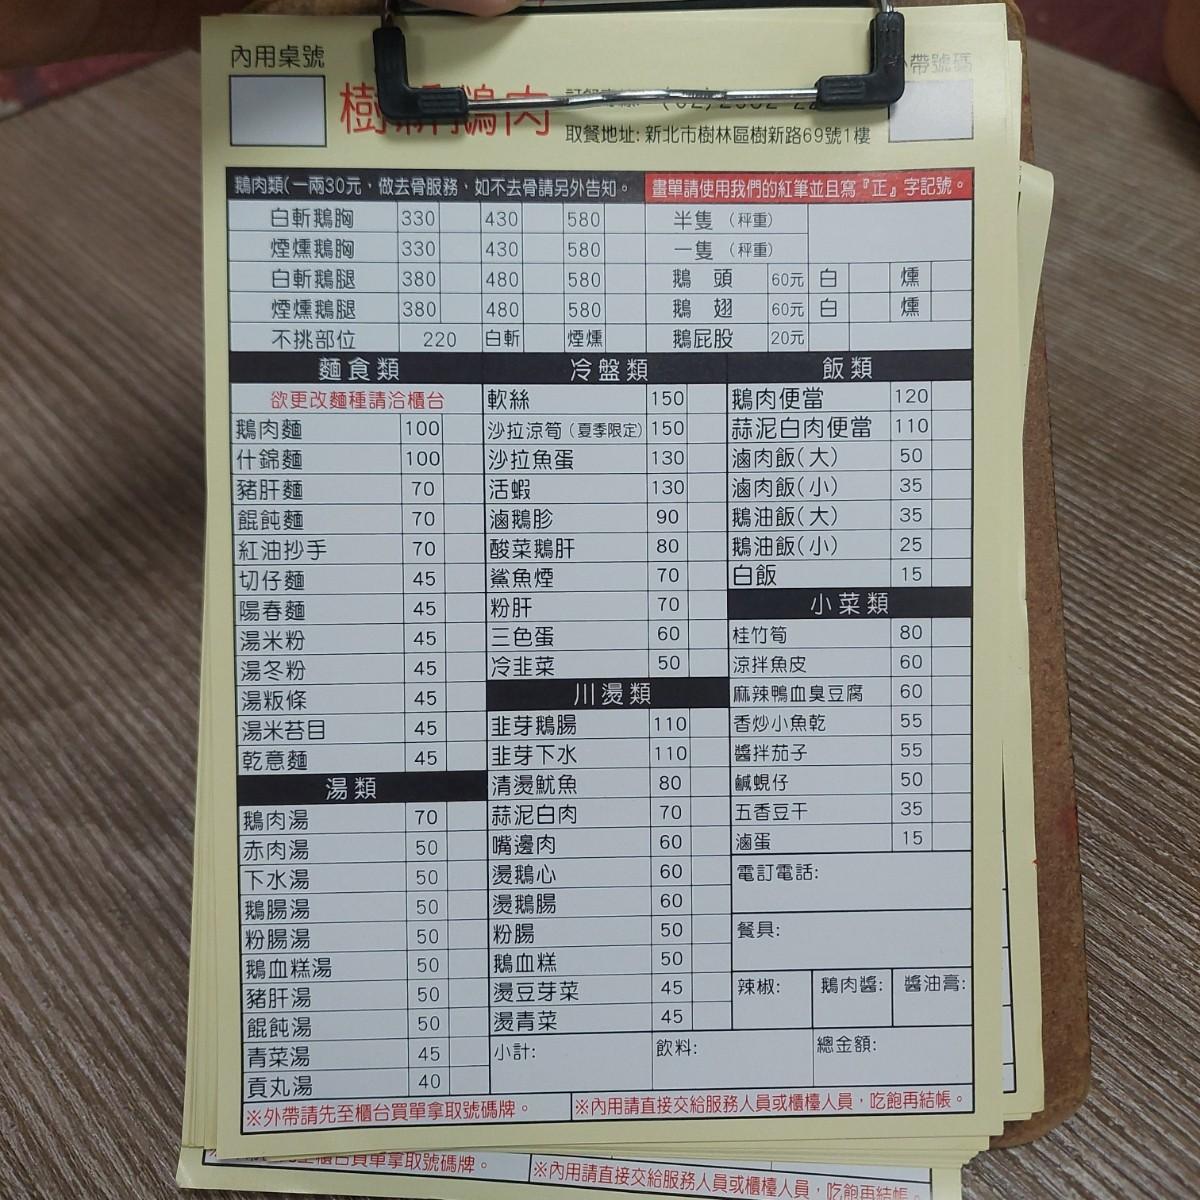 內用桌號
外帶號碼
鵝肉
取餐地址: 新北市樹林區樹新路69號1樓
鵝肉類(一兩30元，做去骨服務，如不去骨請另外告知。
畫單請使用我們的紅筆並且寫『正』字記號。
白斬鵝胸 330 430 580 半隻 (秤重)
煙燻鵝胸 330 430 580 一隻 (秤重)
白斬鵝腿 380 480 580 鵝 頭 60元 白 燻
煙燻鵝腿 380 480 580 鵝 翅 60元 白 燻
不挑部位 220 白斬 煙燻 鵝屁股 20元
麵食類
欲更改麵種請洽櫃台
鵝肉麵 100
什錦麵 100
豬肝麵 70
餛飩麵 70
紅油抄手 70
切仔麵 45
陽春麵 45
湯米粉 45
湯冬粉 45
湯粄條 45
湯米苔目 45
乾意麵 45
湯類
鵝肉湯 70
赤肉湯 50
下水湯 50
鵝腸湯 50
粉腸湯 50
鵝血糕湯 50
豬肝湯 50
餛飩湯 50
青菜湯 45
貢丸湯 40
冷盤類
軟絲 150
沙拉涼筍 (夏季限定) 150
沙拉魚蛋 130
活蝦 130
滷鵝胗 90
酸菜鵝肝 80
鯊魚煙 70
粉肝 70
三色蛋 60
冷韭菜 50
川燙類
韭芽鵝腸 110
韭芽下水 110
清燙魷魚 80
蒜泥白肉 70
嘴邊肉 60
燙鵝心 60
燙鵝腸 60
粉腸 50
鵝血糕 50
燙豆芽菜 45
燙青菜 45
飯類
鵝肉便當 120
蒜泥白肉便當 110
滷肉飯(大) 50
滷肉飯(小) 35
鵝油飯(大) 35
鵝油飯(小) 25
白飯 15
小菜類
桂竹筍 80
涼拌魚皮 60
麻辣鴨血臭豆腐 60
香炒小魚乾 55
醬拌茄子 55
鹹蜆仔 50
五香豆干 35
滷蛋 15
電訂電話:
餐具:
辣椒: 鵝肉醬: 醬油膏:
小計: 飲料: 總金額:
※外帶請先至櫃台買單拿取號碼牌。
※內用請直接交給服務人員或櫃檯人員，吃飽再結帳。
櫃台買單拿取號碼牌。
※內用請直接交給服務人員或櫃檯人員，吃飽再結帳。